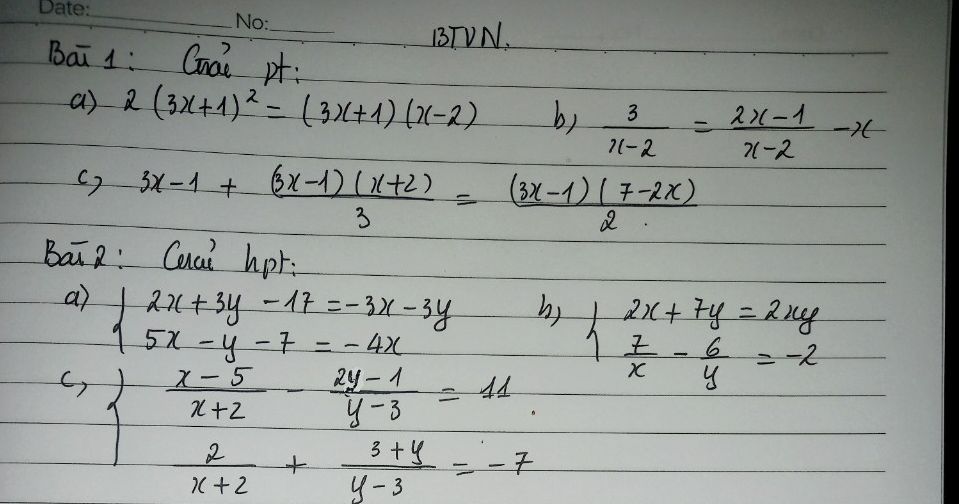 Date: No:
BTVN.
Bài 1: Giải pt:
a) 2(3x+1)² = (3x+1)(x-2) b, 3/(x-2) = (2x-1)/(x-2) - x
c, 3x-1 + (3x-1)(x+2)/3 = (3x-1)(7-2x)/2.
Bài 2: Giải hpt:
a) { 2x+3y-17 = -3x-3y b, { 2x+7y = 2xy
5x-y-7 = -4x 7/x - 6/y = -2
c, { (x-5)/(x+2) - (2y-1)/(y-3) = 11
2/(x+2) + (3+y)/(y-3) = -7